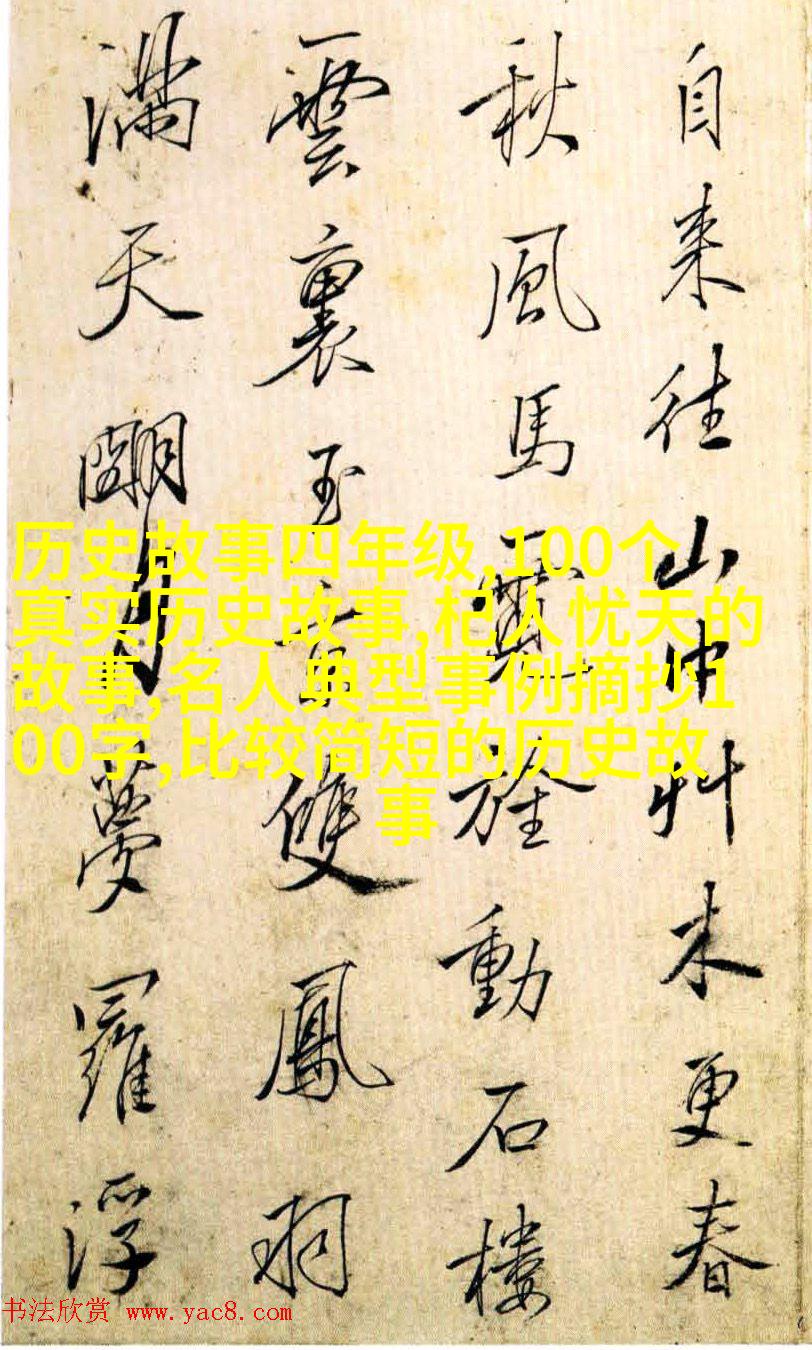 自来往山中艸木更春
秋風馬旌動石樓
雲裏玉童雙鳳羽
滿天朙月夢羅浮
历史故事四年级,100个
真实历史故事,杞人忧天的
故事,名人典型事例摘抄1
00字,比较简短的历史故
事
书法欣赏 www.yac8.com